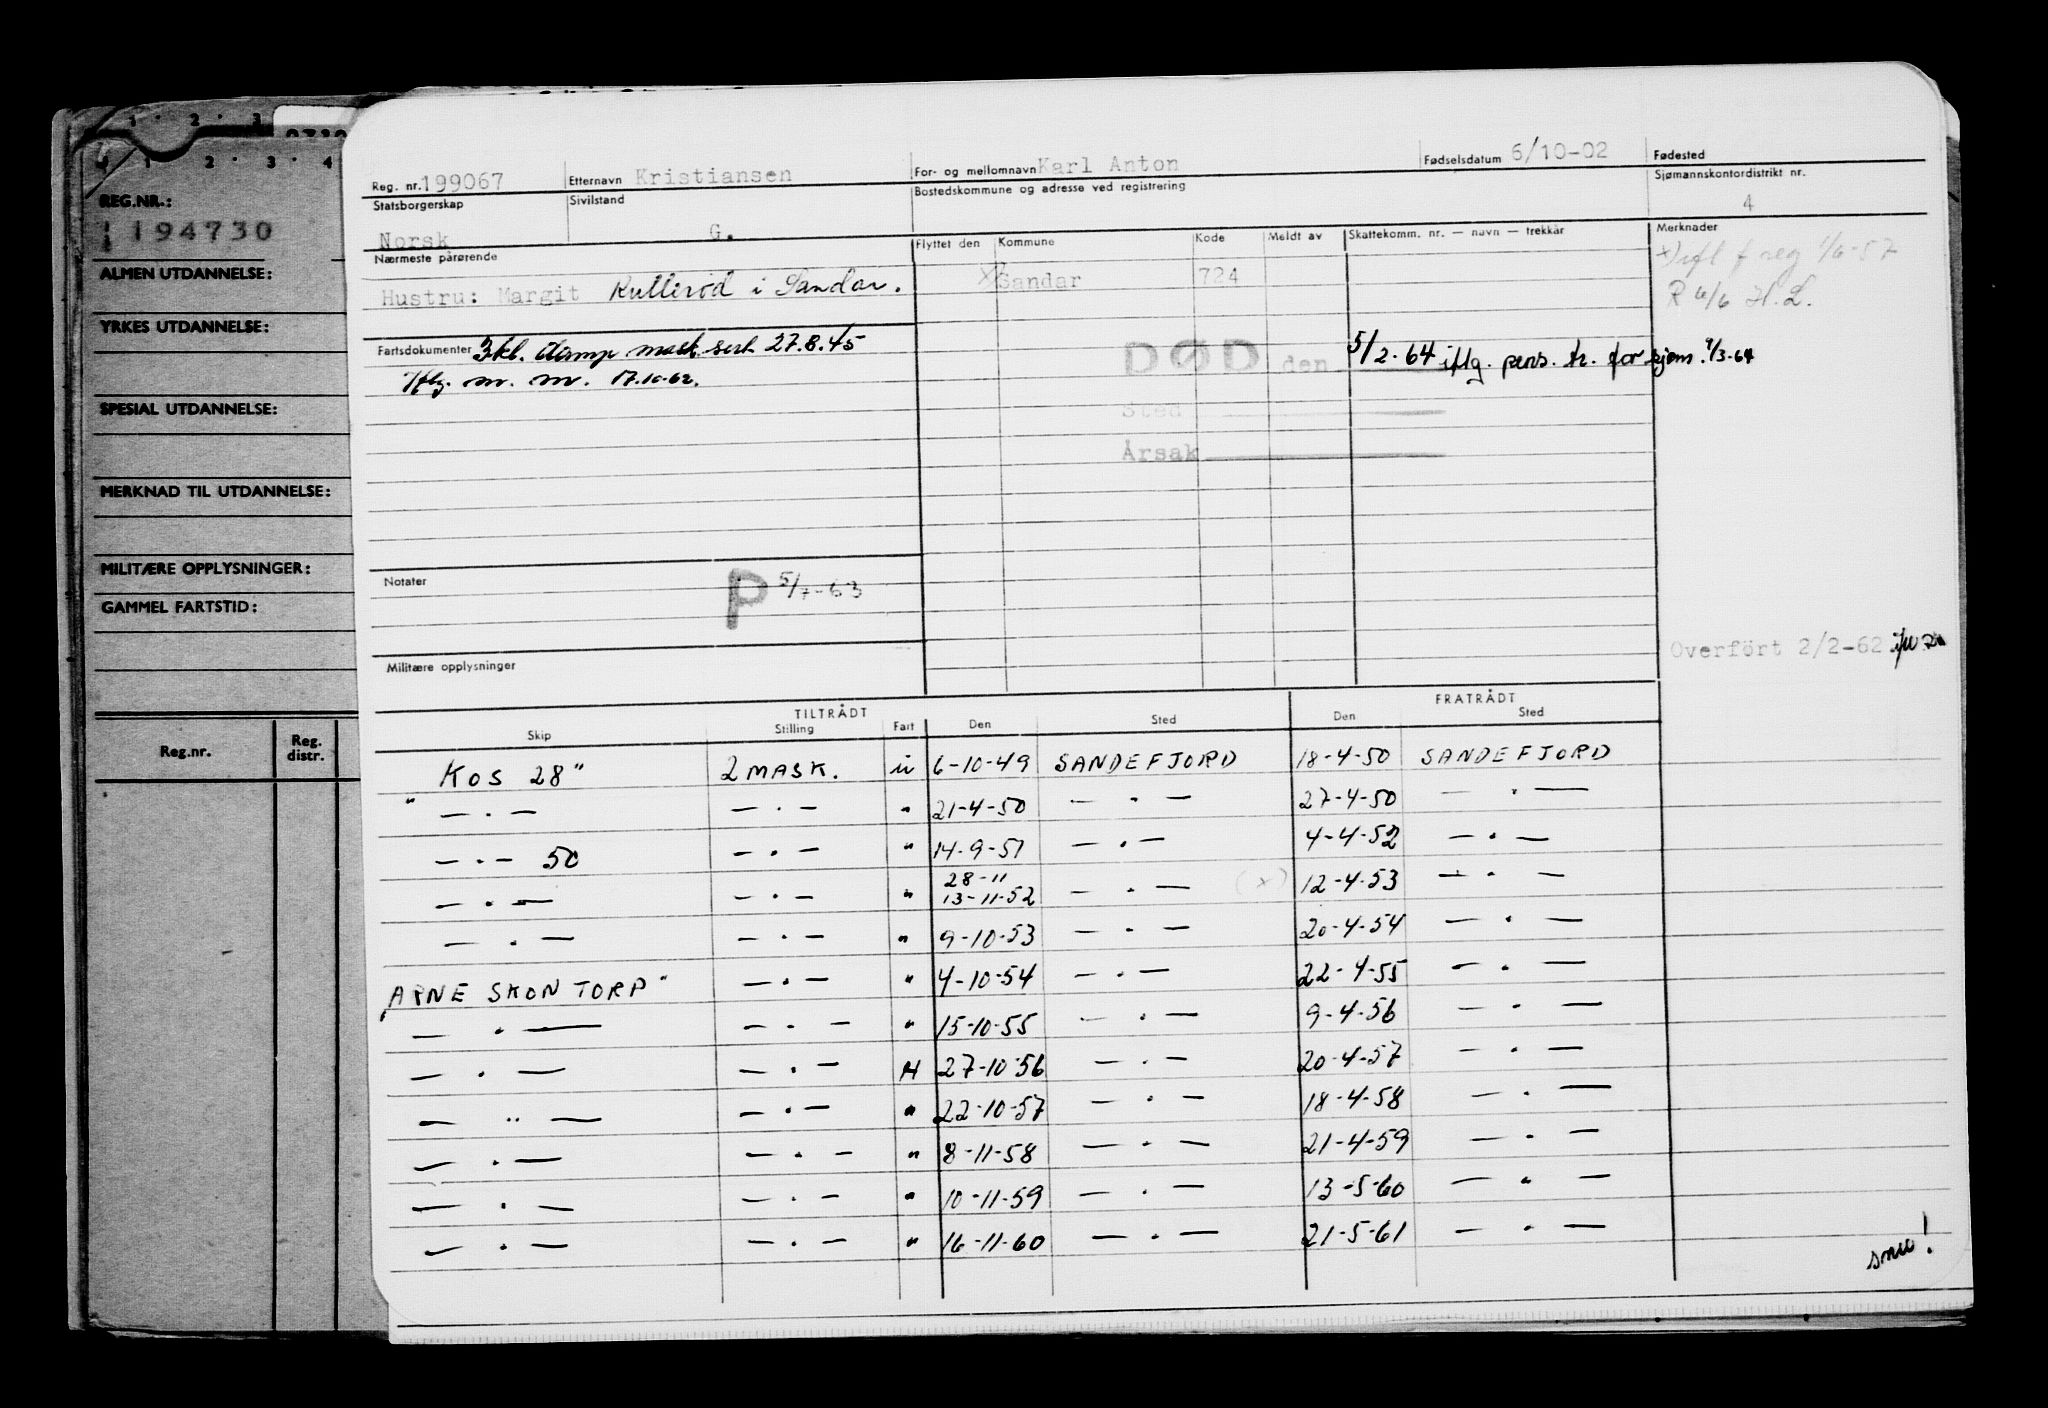 1 · 2 · 3
1 2 · 3 · 4
REG.NR.:
194730
ALMEN UTDANNELSE:
YRKES UTDANNELSE:
SPESIAL UTDANNELSE:
MERKNAD TIL UTDANNELSE:
MILITÆRE OPPLYSNINGER:
GAMMEL FARTSTID:
Reg.nr. Reg. distr.
Reg. nr. 199067 Etternavn Kristiansen For- og mellomnavn Karl Anton Fødselsdatum 6/10-02 Fødested
Statsborgerskap Sivilstand Bostedskommune og adresse ved registrering Sjømannskontordistrikt nr.
Norsk G. 4
Nærmeste pårørende Flyttet den Kommune Kode Meldt av Skattekomm. nr. — navn — trekkår Merknader
Hustru: Margit Kullerød i Sandar. x) Sandar 724 x) ifl f reg 1/6-57
R 6/6 H.L.
Fartsdokumenter 3kl. damp mask. sert. 27.8.45
DØD den 5/2-64 iflg. pens. tr. for sjøm. 4/3-64
Iflg. m. m. 17.10.62.
Sted
Årsak
Notater P 5/7-63
Overført 2/2-62
Militære opplysninger
TILTRÅDT FRATRÅDT
Skip Stilling Fart Den Sted Den Sted
" KOS 28" 2 MASK. u 6-10-49 SANDEFJORD 18-4-50 SANDEFJORD
— · — — · — " 21-4-50 — · — 27-4-50 — · —
— · — 50 — · — " 14-9-51 — · — 4-4-52 — · —
28-11
— · — — · — " 13-11-52 — · — (x) 12-4-53 — · —
— · — — · — " 9-10-53 — · — 20-4-54 — · —
"ARNE SKONTORP" — · — " 4-10-54 — · — 22-4-55 — · —
— · — — · — " 15-10-55 — · — 9-4-56 — · —
— · — — · — H 27-10-56 — · — 20-4-57 — · —
— " — — · — " 22-10-57 — · — 18-4-58 — · —
— · — — · — " 8-11-58 — · — 21-4-59 — · —
— · — — · — " 10-11-59 — · — 13-5-60 — " —
— · — — · — " 16-11-60 — · — 21-5-61 — · —
snu!